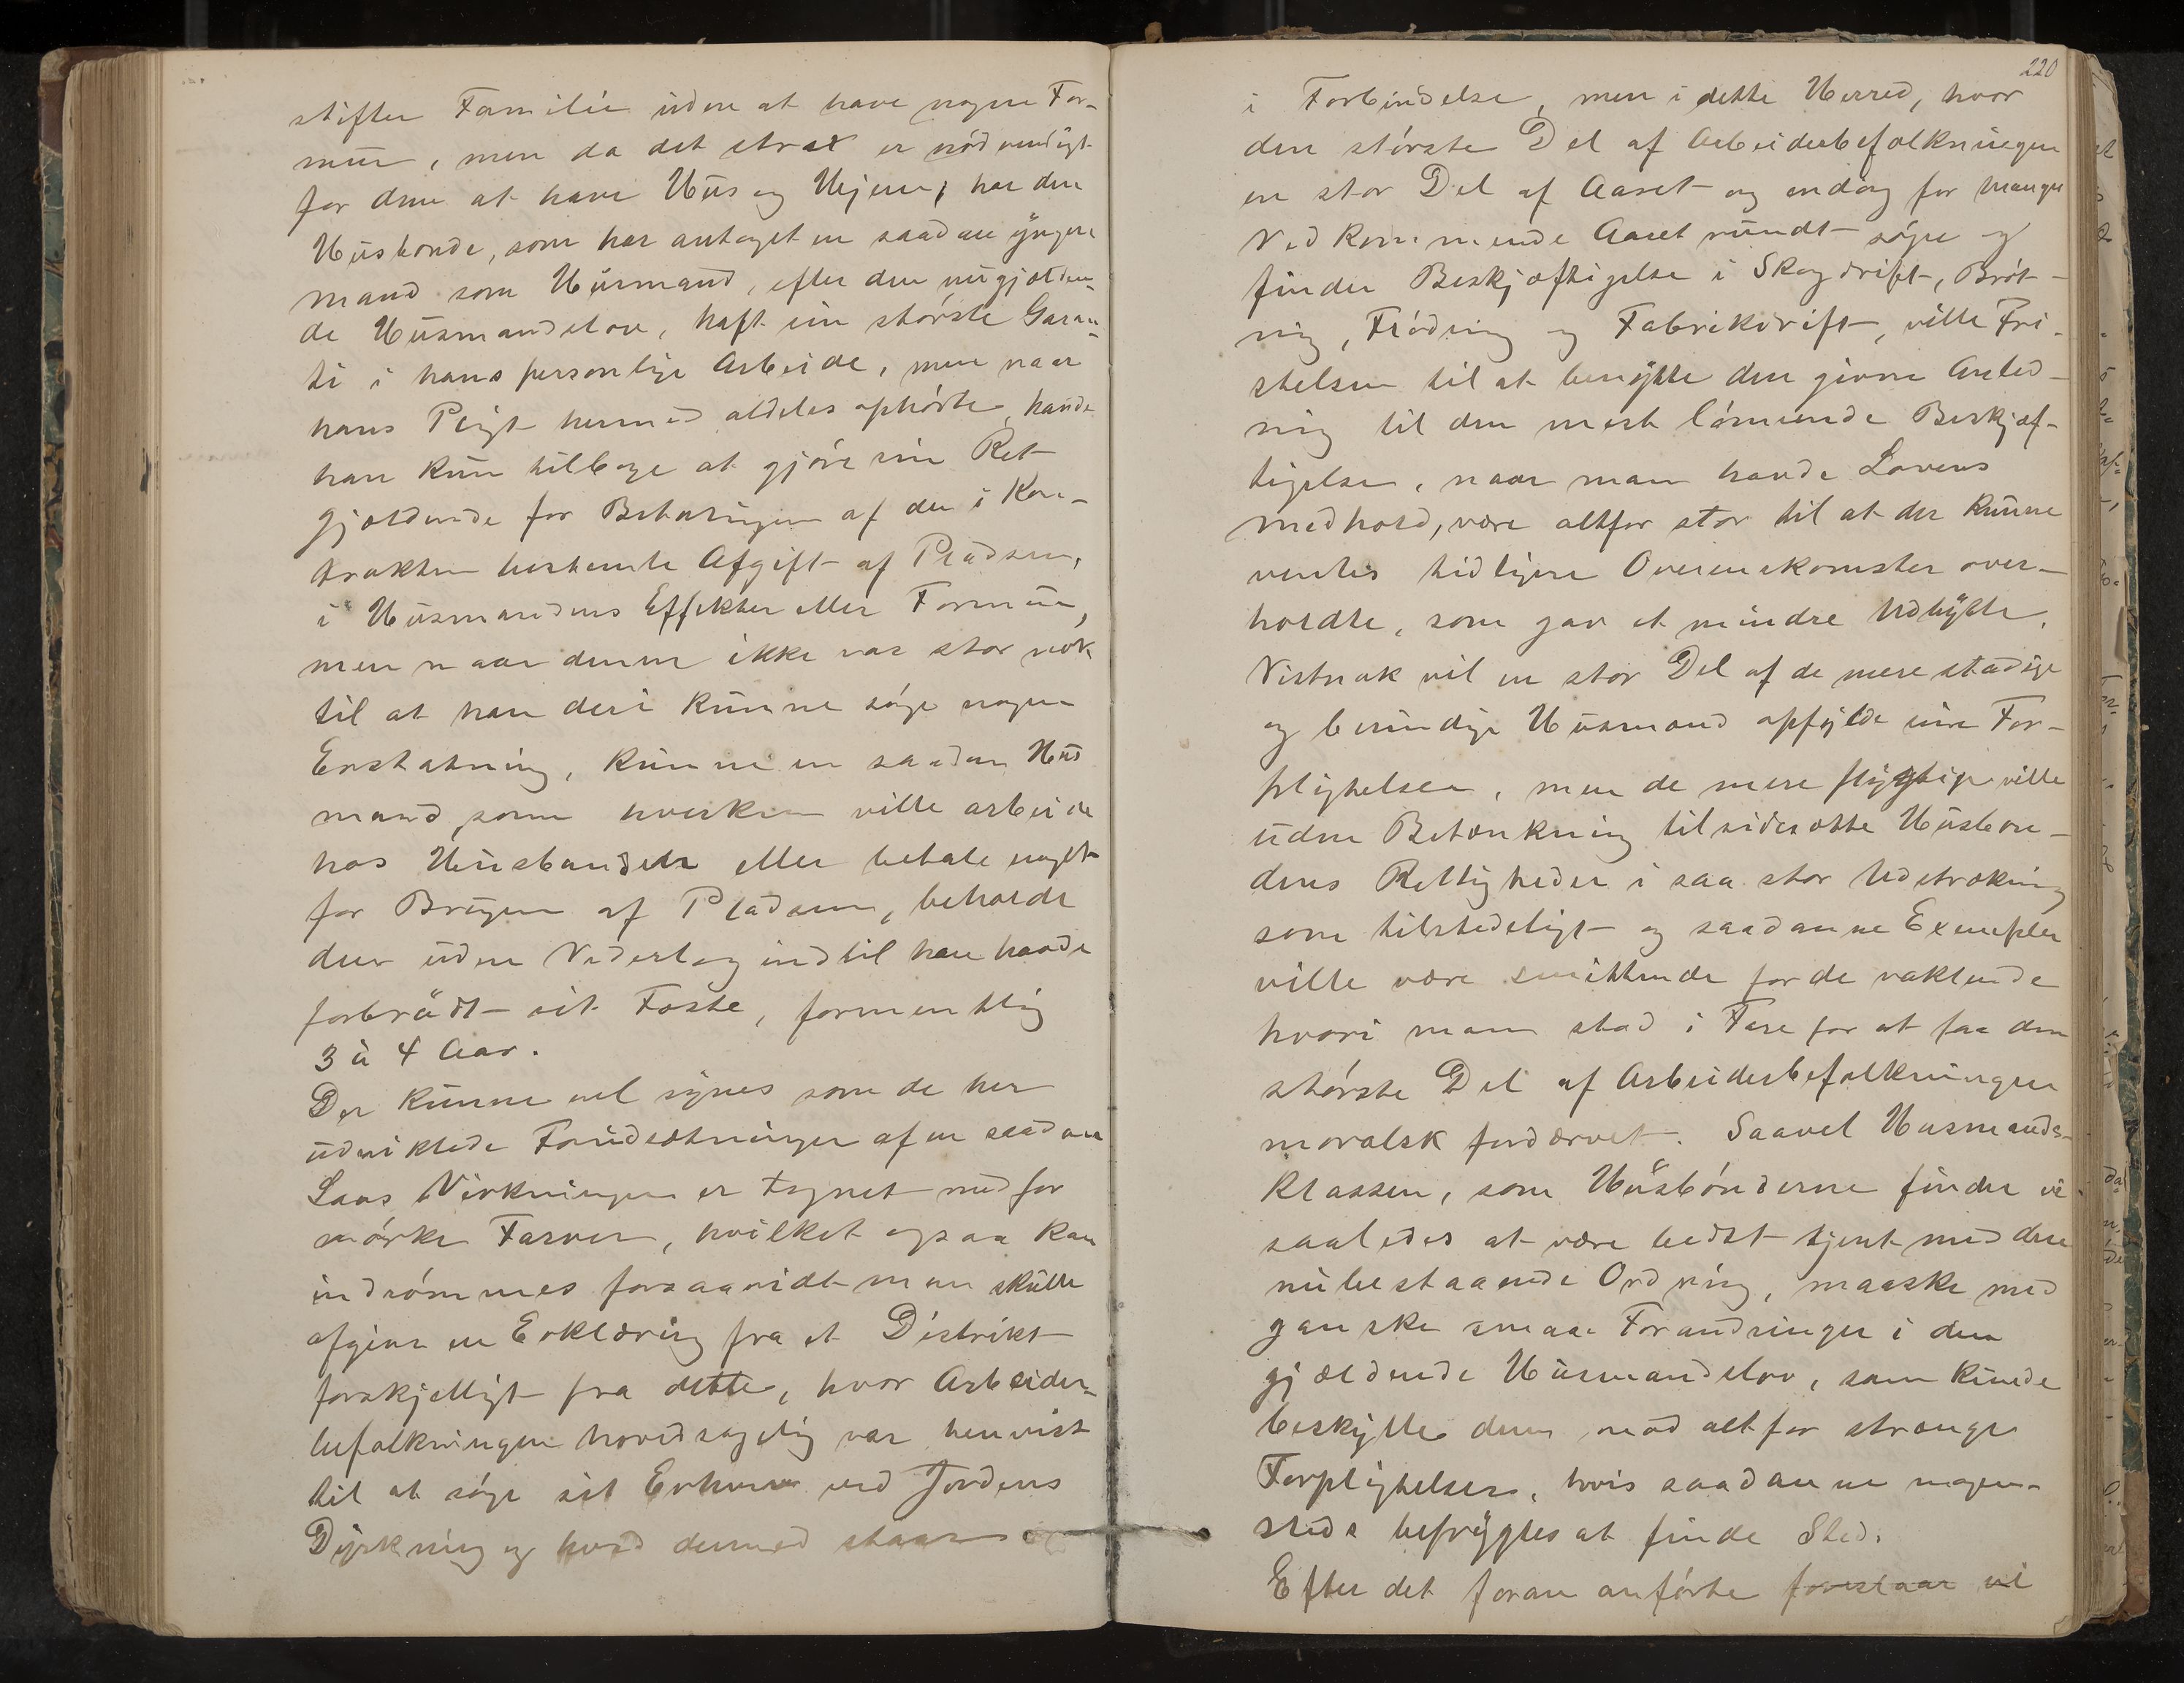 stifter Familie uden at have nogen For-
mue, men da det strax er nødvendigt
for dem at have Hus og Hjem, har den
Husbonde, som har antaget en saadan yngre
mand som Husmand, efter den nugjælden-
de Husmandslov, haft sin største Garan-
ti i hans personlige Arbeide, men naar
hans Pligt hermed aldeles ophørte, havde
han kun tilbage at gjøre sin Ret
gjældende for Betalingen af den i Kon-
trakten bestemte Afgift af Pladsen,
i Husmandens Effekter eller Formue,
men naar denne ikke var stor nok
til at han deri kunne søge nogen
Erstatning, kunne en saadan Hus
mand som hverken ville arbeide
hos Husbonden eller betale noget
for Brugen af Pladsen, beholde
den uden Vederlag indtil han havde
forbrudt sit Fæste, formentlig
3 à 4 Aar.
Der kunne vel synes som de her
udviklede Forudsætninger af en saadan
Lovs Virkninger er tegnet med for
mørke Farver, hvilket ogsaa kan
indrømmes forsaavidt man skulle
afgive en Erklæring fra et Distrikt
forskjelligt fra dette, hvor Arbeider-
befolkningen hovedsagelig var henvist
til at søge sit Erhverv ved Jordens
Dyrkning og hvad dermed staar
220
i Forbindelse, men i dette Herred, hvor
den største Del af Arbeiderbefolkningen
en stor Del af Aaret og endog for mange
Vedkommende Aaret rundt søger og
finder Beskjæftigelse i Skogdrift, Brøt-
ning, Flødning og Fabrikdrift, ville Fri-
stelsen til at benytte den givne Anled-
ning til den mest lønnende Beskjæf-
tigelse, naar man havde Lovens
medhold, være altfor stor til at der kunne
ventes tidligere Overenskomster over-
holdte, som gav et mindre Udbytte.
Vistnok vil en stor Del af de mere stadige
og besindige Husmænd opfylde sine For-
pligtelser, men de mere flygtige ville
uden Betænkning tilsidesætte Husbon-
dens Rettigheder i saa stor Udstrækning
som tilstedeligt og saadanne Exempler
ville være smittende for de vaklende
hvori man stod i Fare for at faa den
største Del af Arbeiderbefolkningen
moralsk fordærvet. Saavel Husmands-
klassen, som Husbønderne finder vi
saaledes at være bedst tjent med den
nubestaaende Ordning, maaske med
ganske smaa Forandringer i den
gjældende Husmandslov, som kunde
beskytte dem mod altfor strænge
Forpligtelser, hvis saadanne nogen-
steds befrygtes at finde Sted.
Efter det foran anførte foreslaar vi